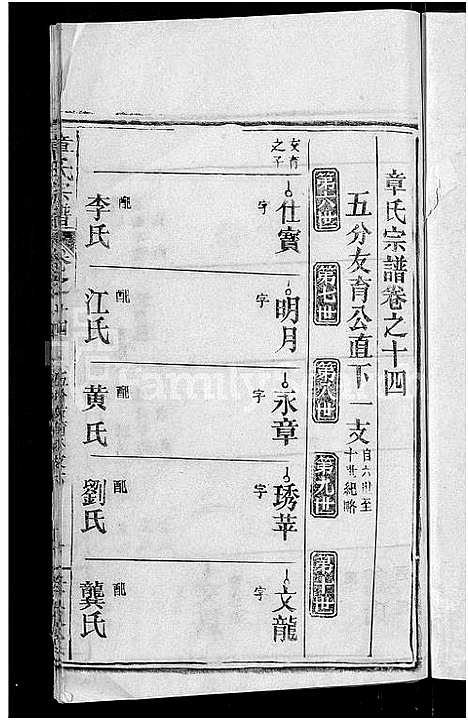 章氏宗譜卷之十四
五分友育公直下一支
自六世至
十世紀略
第六世
第七世
第八世
第九世
第十世
友育
之子
仕寶
字
配
李氏
明月
字
配
江氏
永章
字
配
黄氏
琇苹
字
配
劉氏
文龍
字
配
龔氏
章氏宗譜